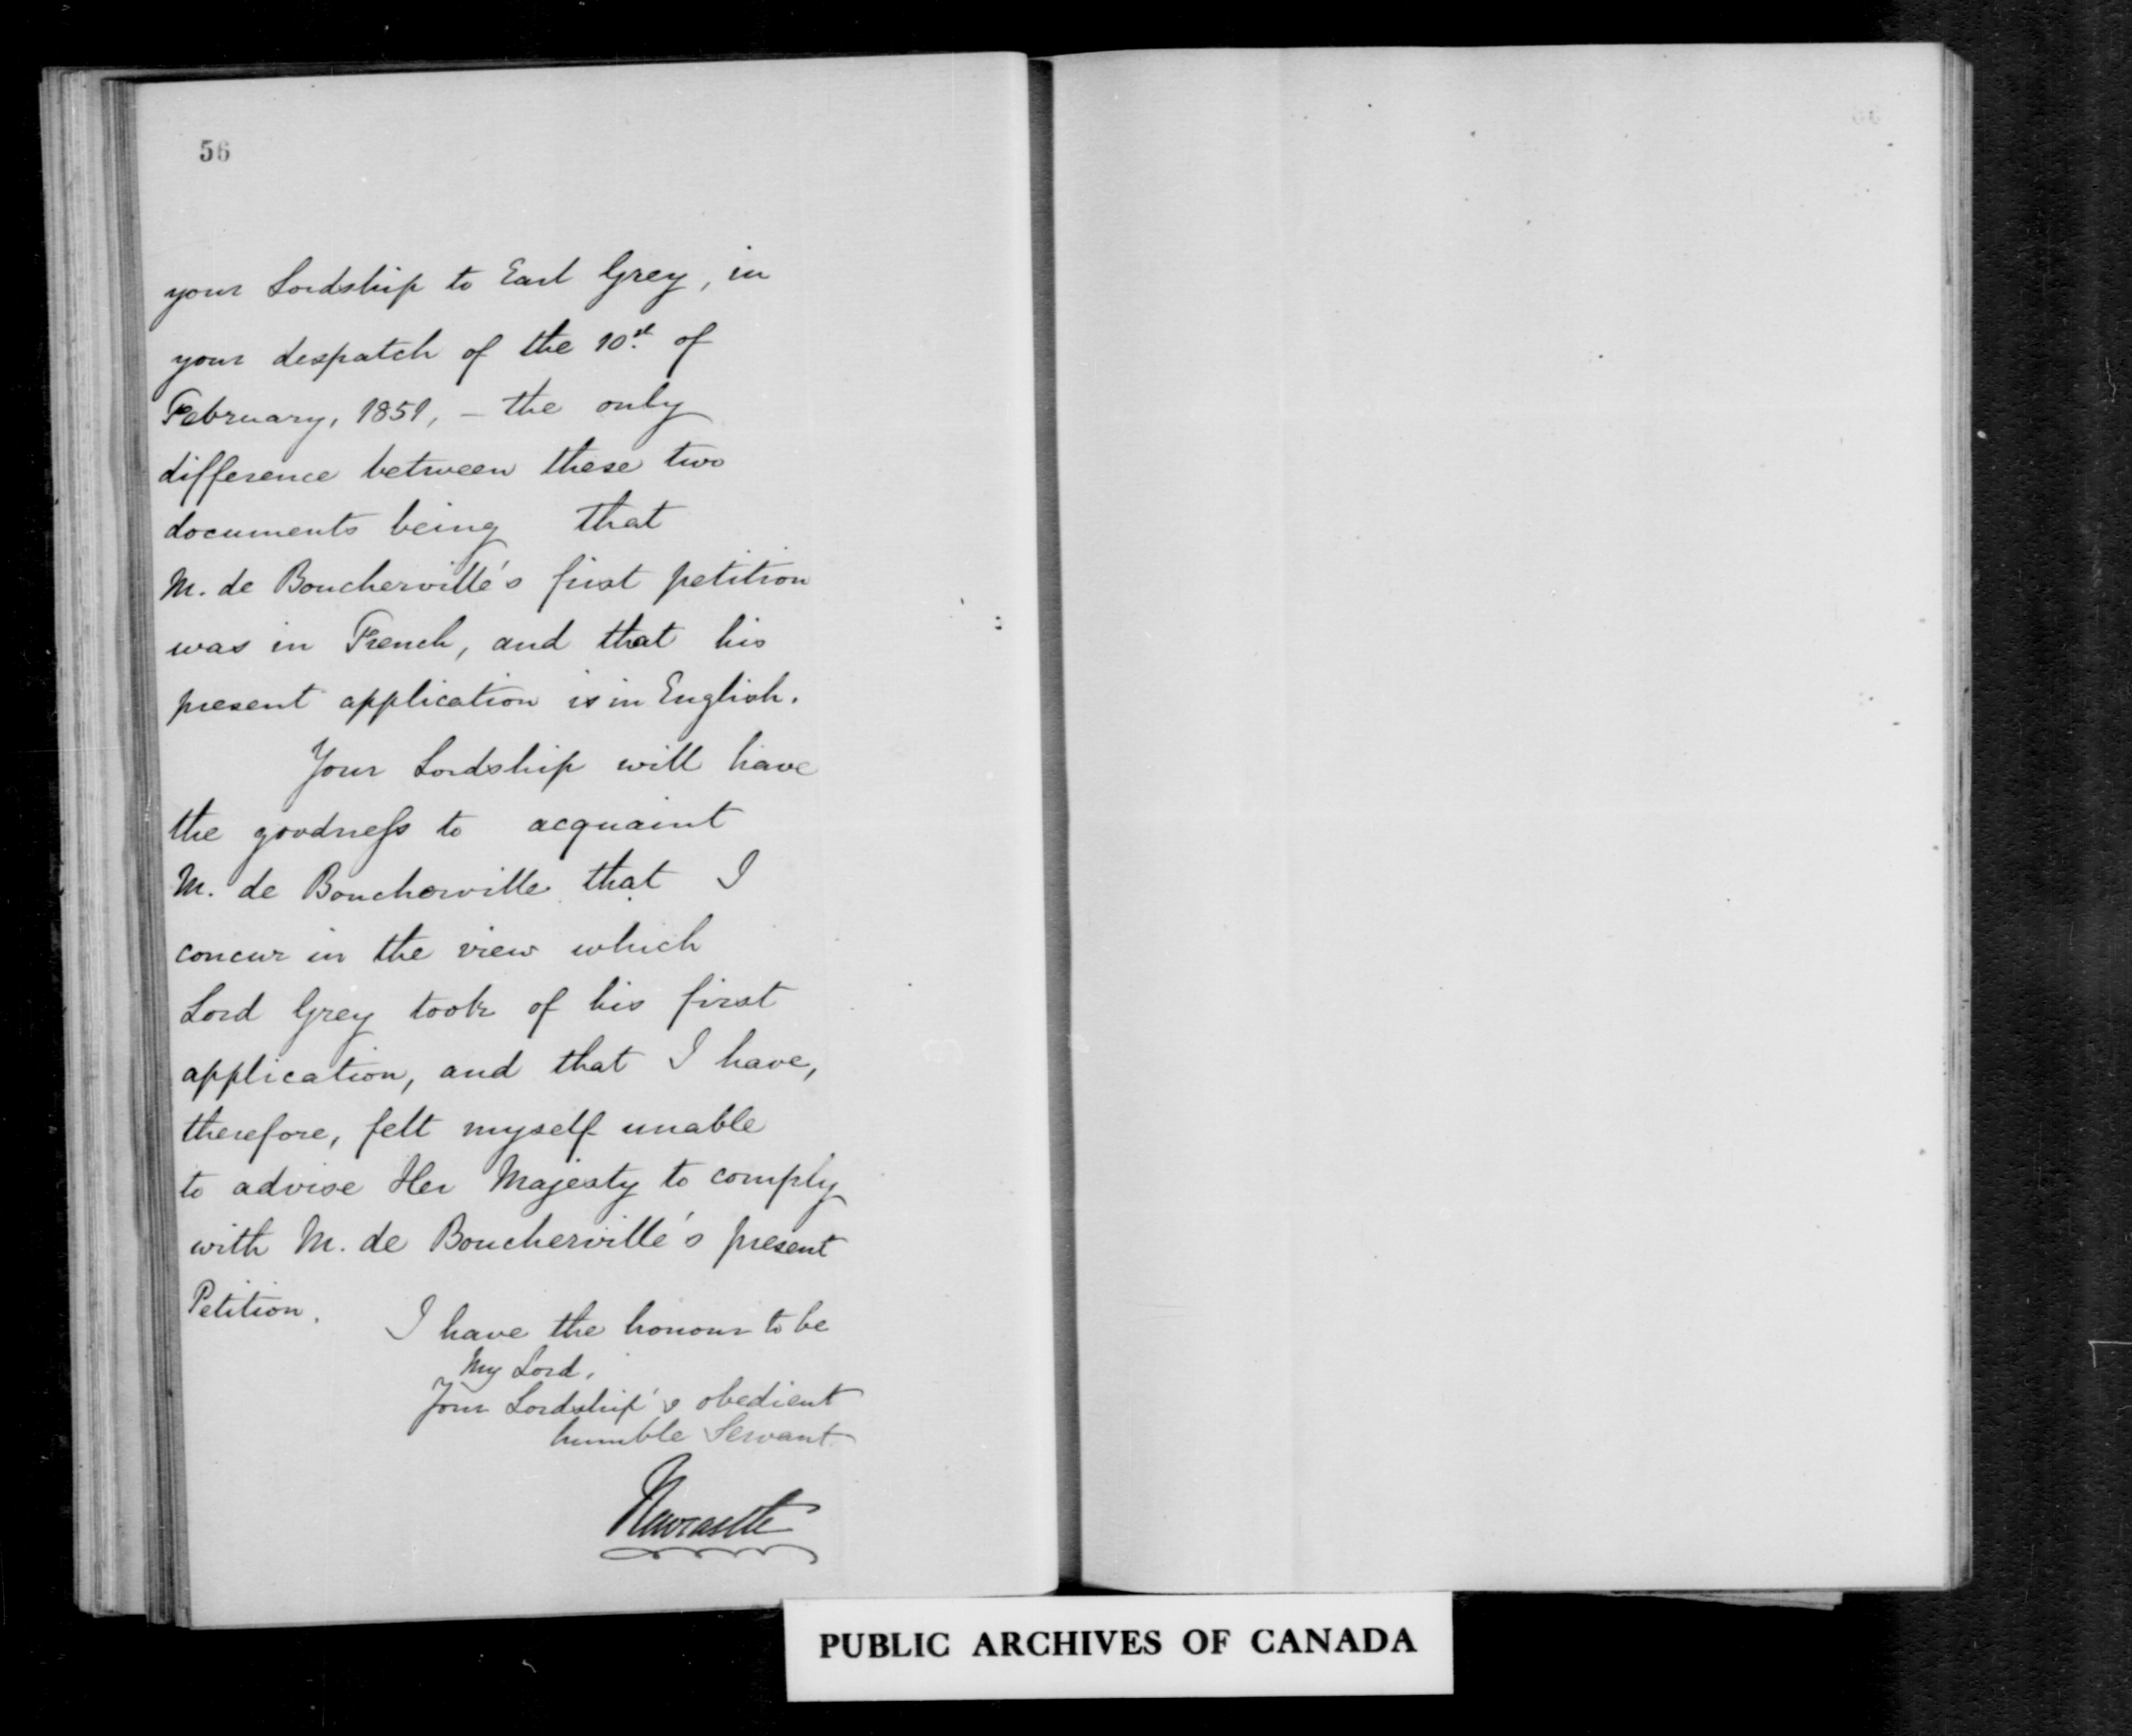 56
your Lordship to Earl Grey, in
your despatch of the 10th of
February, 1851, – the only
difference between these two
documents being that
M. de Boucherville's first petition
was in French, and that his
present application is in English.
Your Lordship will have
the goodness to acquaint
M. de Boucherville that I
concur in the view which
Lord Grey took of his first
application, and that I have,
therefore, felt myself unable
to advise Her Majesty to comply
with M. de Boucherville's present
Petition.
I have the honour to be
My Lord,
Your Lordship's obedient
humble Servant
Newcastle
PUBLIC ARCHIVES OF CANADA